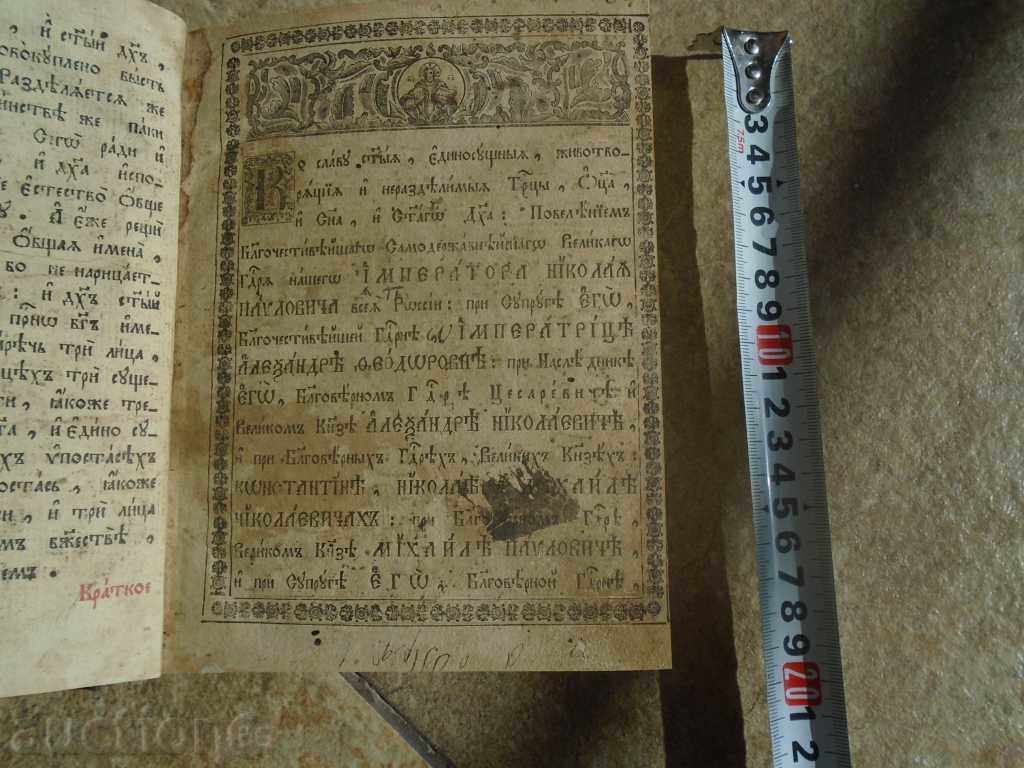 , и҆ ст҃ый дх҃ъ ,
вокꙋплено бысть
Раздѣлѧетсѧ же
инствѣ же паки
Сегѡ̀ ради и҆
и҆ дх҃а испо-
е є҆стество̀ ѻ҆бще
. А҆ є҆же рещѝ
Ѻ҆бщаѧ и҆мена̀
бо не нарицает-
: и҆ дх҃ъ ст҃ый
при́снѡ бг҃ъ и҆ме-
речь трѝ лица̀ ,
цѣхъ трѝ сꙋще-
ти , ꙗ҆коже тре-
та , и҆ є҆ди́но сꙋ-
хъ ѵ҆постасѣхъ
постась , ꙗ҆коже
и , и҆ трѝ лица̀
мъ бж҃ествѣ ,
емъ .
Кра́ткое
Во славꙋ ст҃ыѧ , є҆диносꙋщныѧ , животво-
рѧщїѧ и҆ нераздѣлимыѧ Трⷪ҇цы , Ѻ҆ц҃а ,
и҆ Сн҃а , и҆ Ст҃агѡ Дх҃а : Повелѣнїемъ
Бл҃гочестивѣйшагѡ Самодержавнѣйшагѡ Великагѡ
Гдⷭ҇рѧ нашегѡ И҆МПЕРАТОРА НИКОЛАѦ
ПАѴЛОВИЧА всеѧ̀ Рѡссїи : при Сꙋпрꙋгѣ Є҆ГѠ̀ ,
Благочестивѣйшей Гдⷭ҇рнѣ И҆МПЕРАТРИЦѢ
А҆ЛЕѮАНДРѢ Ѳ҆ЕОДѠРОВНѢ : при Наслѣдникѣ
Є҆ГѠ̀ , Благовѣрномъ Гдⷭ҇рѣ Цесаревичѣ и҆
Великомъ Кн҃зѣ А҆ЛЕѮАНДРѢ НИКОЛАЕВИЧѢ ,
и҆ при Благовѣрныхъ Гдⷭ҇рехъ , Великихъ Кнѧзѣхъ :
КѠНСТАНТИНѢ , НИКОЛАѢ МИХАИЛѢ
НИКОЛАЕВИЧАХЪ : при Благовѣрномъ Гдⷭ҇рѣ ,
Великомъ Кн҃зѣ МИХАИЛѢ ПАѴЛОВИЧѢ ,
и҆ при Сꙋпрꙋгѣ Є҆ГѠ̀ , Благовѣрной Гдⷭ҇рнѣ ,
75m
3 4 5 6 7 8 9 10 1 2 3 4 5 6 7 8 9 20 1 2
auction.bg